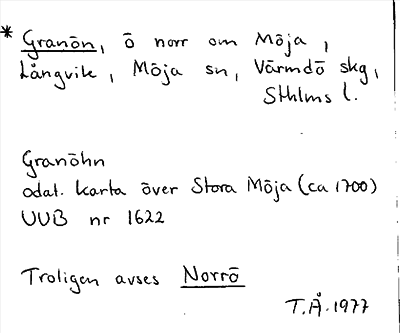 * Granön, ö norr om Möja,
Långvik, Möja sn, Värmdö skg,
Sthlms l.
Granöhn
odat. karta över Stora Möja (ca 1700)
UUB nr 1622
Troligen avses Norrö
T.Å. 1977